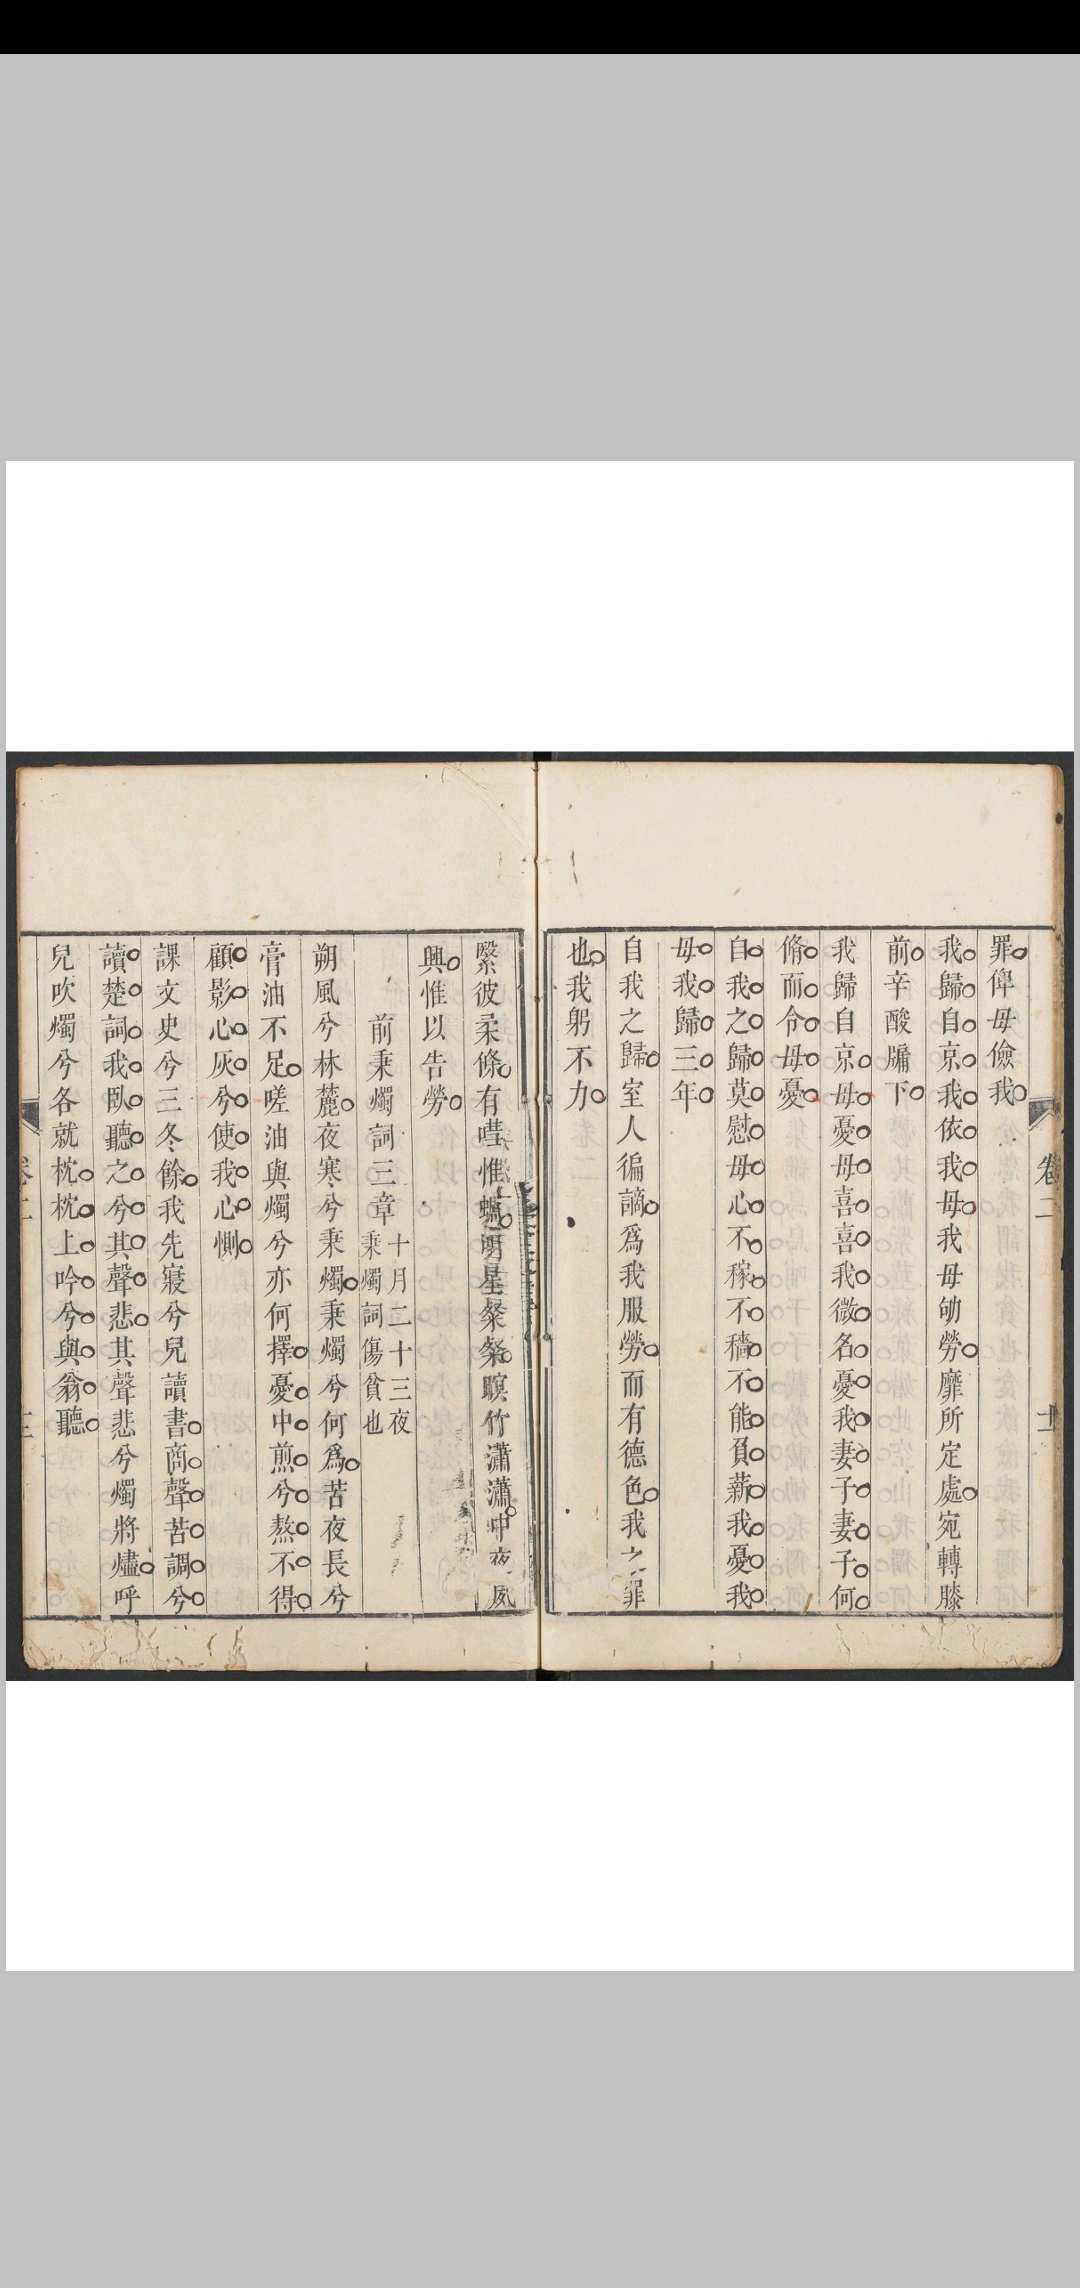 卷二
十一
罪俾母儉我
我歸自京我依我母我母劬勞靡所定處宛轉膝
前辛酸牖下
我歸自京母憂母喜喜我微名憂我妻子妻子何
脩而令母憂
自我之歸莫慰母心不稼不穡不能負薪我憂我
母我歸三年
自我之歸室人徧謫爲我服勞而有德色我之罪
也我躬不力
繄彼柔條有嘒惟蜩明星粲粲暝竹瀟瀟中夜夙
興惟以告勞
前秉燭詞三章
十月二十三夜
秉燭詞傷貧也
朔風兮林麓夜寒兮秉燭秉燭兮何爲苦夜長兮
膏油不足嗟油與燭兮亦何擇憂中煎兮熬不得
顧影心灰兮使我心惻
課文史兮三冬餘我先寢兮兒讀書商聲苦調兮
讀楚詞我臥聽之兮其聲悲其聲悲兮燭將燼呼
兒吹燭兮各就枕枕上吟兮與翁聽